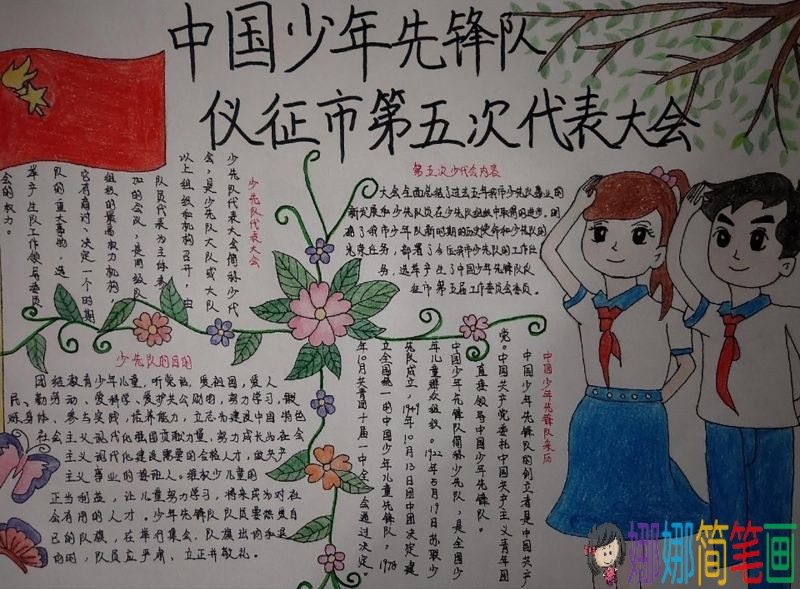 中国少年先锋队
仪征市第五次代表大会
少先队代表大会
少先队代表大会简称少代
会，是少先队大队或大队
以上组织和机构召开，由
队员代表为主体参
加的会议，是同级队
组织的最高权力机构，
它有商讨、决定一个时期
队的重大事动，选
举产生队工作领导委员
会的权力。
第五次少代会内容
大会全面总结了过去五年我市少先队事业的
新发展和少先队员在少先队组织中取得的进步，明
确了我市少年队新时期的历史使命和少先队的
光荣任务，部署了今后我市少先队的工作任
务，选举产生了中国少年先锋队仪
征市第五届工作委员会委员。
少先队的目的
团结教育少年儿童，听党话，爱祖国，爱人
民，勤劳动，爱科学，爱护公共财团，努力学习，锻
炼身体，参与实践，培养能力，立志为建设中国特色
社会主义现代化强国贡献力量，努力成长为社会
主义现代化建设需要的合格人才，做共产
主义事业的接班人。维权少儿童的
正当利益，让儿童努力学习，将来成为对社
会有用的人才。少年先锋队队员要热爱自
己的队旗，在举行集会，队旗出场和退
场时，队员应严肃、立正并敬礼。
中国少年先锋队来历
中国少年先锋队的创立者是中国共产
党。中国共产党委托中国共产主义青年团
直接领导中国少年先锋队。
中国少年先锋队简称少先队，是全国少
年儿童群众组织。1922年5月19日苏联少
先队成立，1949年10月13日团中团决定建
立全国统一的中国少年儿童先锋队，1978
年10月共青团十届一中全会会通过决定。
娜娜简笔画